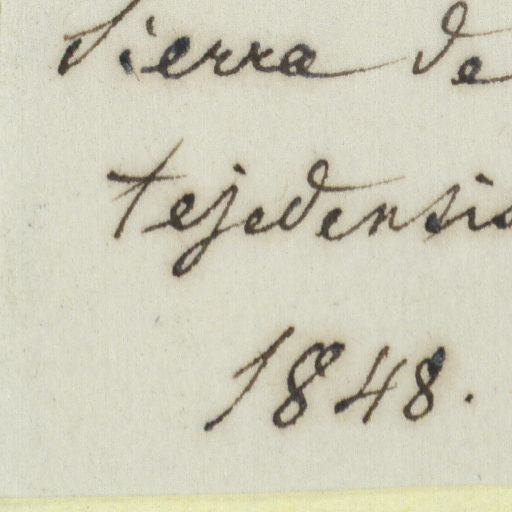 Sierra de
tejedensis
1848.